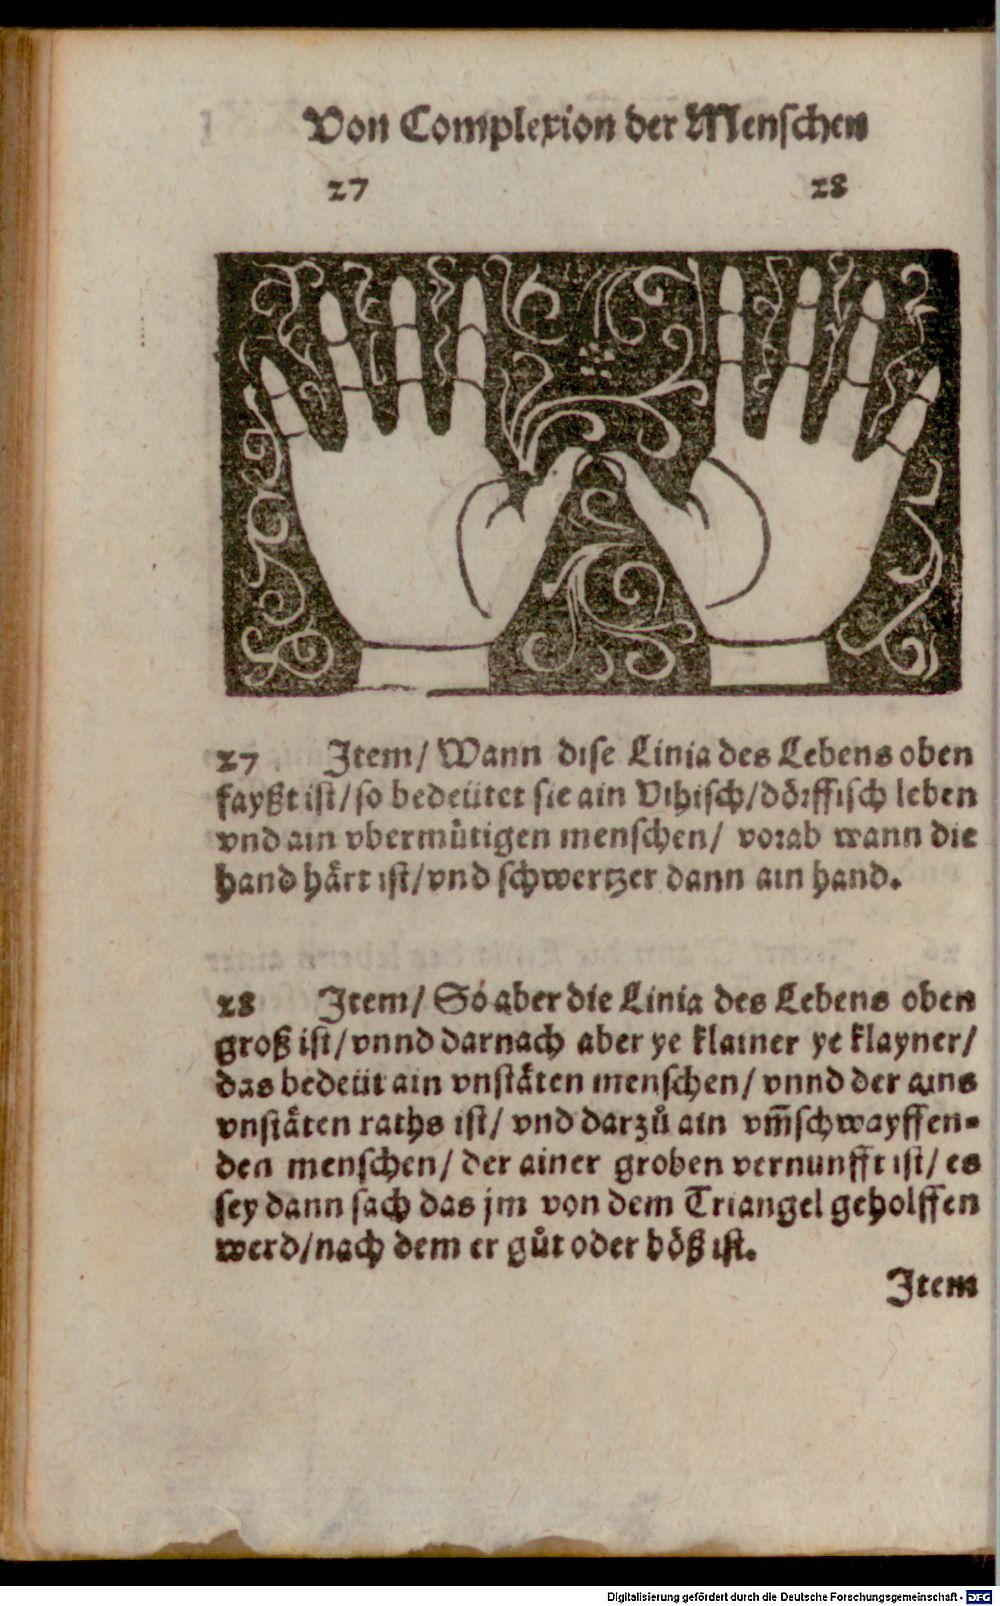 Von Complexion der Menschen
27 28
27 Item/ Wann dise Linia des Lebens oben
fayßt ist/ so bedeütet sie ain Vihisch/ dörffisch leben
vnd ain vbermůtigen menschen/ vorab wann die
hand härt ist/ vnd schwertzer dann ain hand.
28 Item/ So aber die Linia des Lebens oben
groß ist/ vnnd darnach aber ye klainer ye klayner/
das bedeüt ain vnstäten menschen/ vnnd der ains
vnstäten raths ist/ vnd darzů ain vm̃schwayffen-
den menschen/ der ainer groben vernunfft ist/ es
sey dann sach das jm von dem Triangel geholffen
werd/ nach dem er gůt oder böß ist.
Item
Digitalisierung gefördert durch die Deutsche Forschungsgemeinschaft - DFG